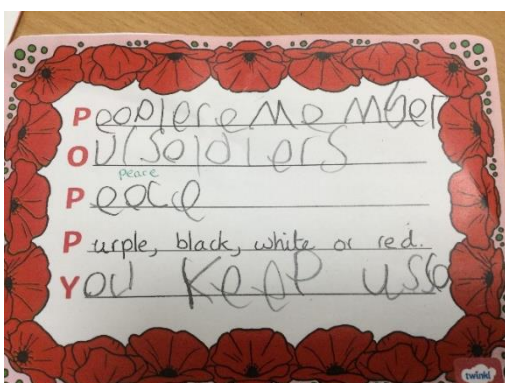 People remember
Our Soldiers
peace
Peace
Purple, black, white or red.
You Keep us sa
twinkl